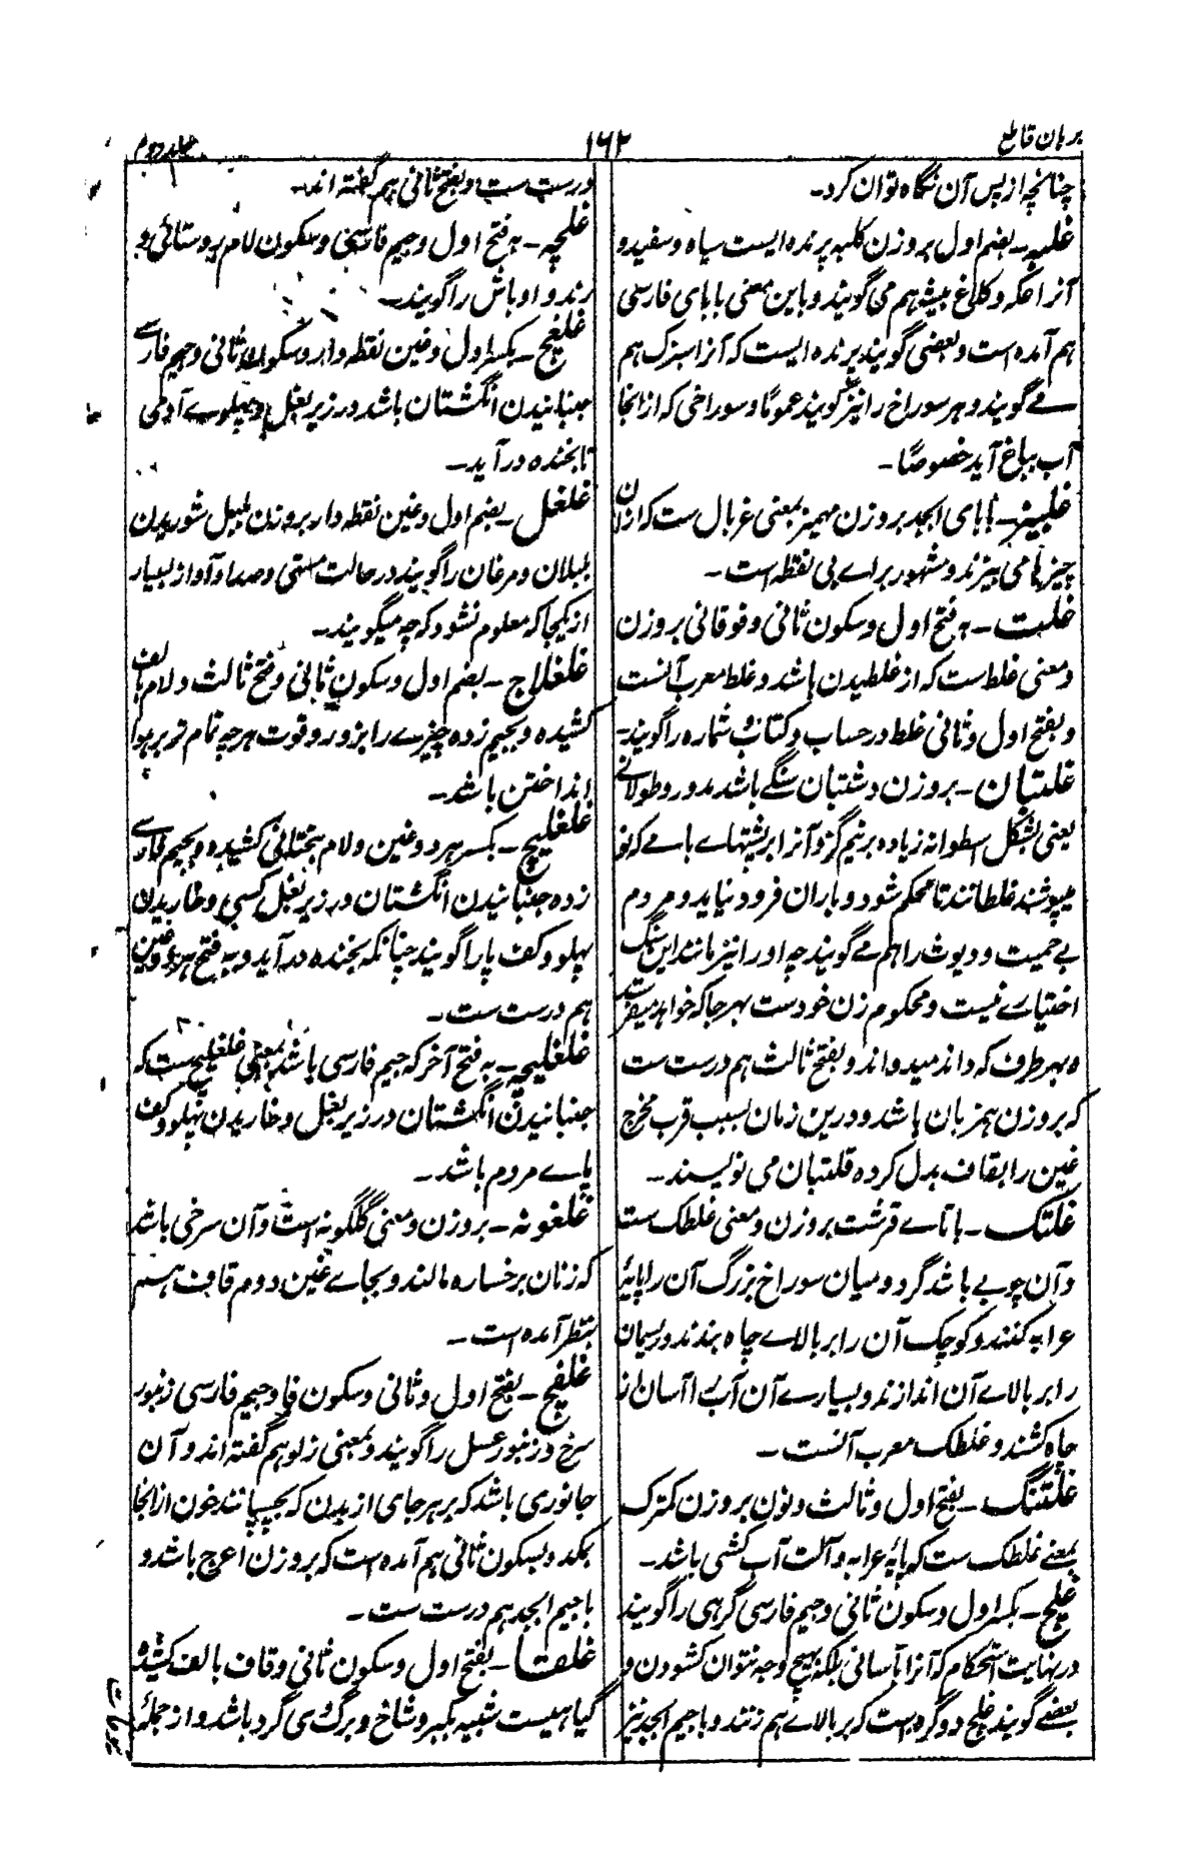 برهان قاطع
۱۶۲
جلد دوم
چنانچه از پس آن نگاه توان کرد۔
غلبه۔ بضم اول بروزن کلبه پرنده ایست سیاه و سفید و
آنرا عکه و کلاغ پیشه هم می گویند و باین معنی با بای فارسی
هم آمده است و بعضی گویند پرنده ایست که آنرا سبزک هم
مے گویند و هر سوراخ را نیز گویند عموماً و سوراخی که از انجا
آب بباغ آید خصوصًا۔
غلبیز۔ با بای ابجد بروزن مهمیز بمعنی غربال ست که ازان
چیزها می بیزند و مشهور برا ے بی نقطه است۔
غلبت۔ به فتح اول و سکون ثانی و فوقانی بروزن
و معنی غلط است که از غلطیدن باشد و غلط معرب آنست
و بفتح اول و ثانی غلط در حساب و کتاب و شماره را گویند۔
غلتبان۔ بروزن دشتبان سنگے باشد مدور و طولانے
یعنی بشکل اسطوانه زیاده بر نیم گز و آنرا بر پشتهاے بامے که نو
میپوشند غلطانند تا محکم شود و باران فرود نیاید و مردم
بے حمیت و دیوث را هم مے گویند چه او را نیز مانند این سنگ
اختیارے نیست و محکوم زن خودست بهر جا که خواهد میفرستد
و بهر طرف که داند میدواند و بفتح ثالث هم درست ست
که بروزن همزبان باشد و درین زمان بسبب قرب مخرج
غین را بقاف بدل کرده قلتبان می نویسند۔
غلتک۔ با تاے قرشت بروزن و معنی غلطک ست
و آن چوبے باشد گرد و میان سوراخ بزرگ آن را پایۂ
عرابه کنند و کوچک آن را بر بالاے چاه بندند و ریسمان
را بر بالاے آن اندازند و بسیارے آن آب را آسان از
چاه کشند و غلطک معرب آنست۔
غلتنگ۔ بفتح اول و ثالث و نون بروزن کمترک
بمعنے غلطک ست که پایۂ عرابه و آلت آب کشی باشد۔
غلچ۔ بکسر اول و سکون ثانی و جیم فارسی گرهی را گویند
در نهایت استحکام که آنرا آسانی بلکه بهیچ وجه نتوان کشودن و
بعضے گویند غلچ دو گره است که بر بالاے هم زنند و با جیم ابجد نیز
درست ست و بفتح ثانی هم گفته اند۔
غلچه۔ به فتح اول و جیم فارسی و سکون لام روستائی و
رند و اوباش را گویند۔
غلغچ۔ بکسر اول و غین نقطه دار و سکون ثانی و جیم فارسے
جنبانیدن انگشتان باشد در زیر بغل و پهلوے آدمی
تا بخنده در آید۔
غلغل۔ بضم اول و غین نقطه دار بروزن بلبل شوریدن
بلبلان و مرغان را گویند در حالت مستی و صدا و آواز بسیار
از یکجا که معلوم نشود که چه میگویند۔
غلغلاج۔ بضم اول و سکون ثانی و فتح ثالث و لام بالف
کشیده و بجیم زده چیزے را بزور و قوت هر چه تمام تر بر هوا
انداختن باشد۔
غلغلیچ۔ بکسر هر دو غین و لام بتحتانی کشیده و بجیم فارسے
زده جنبانیدن انگشتان در زیر بغل کسی و خاریدن
پهلو و کف پا را گویند چنانکه بخنده در آید و به فتح هر دو غین
هم درست ست۔
غلغلیچه۔ به فتح آخر که جیم فارسی باشد بمعنی غلغلیچ ست که
جنبانیدن انگشتان در زیر بغل و خاریدن پهلو و کف
پاے مردم باشد۔
غلغونه۔ بروزن و معنی گلگونه است و آن سرخی باشد
که زنان بر خساره مالند و بجاے غین دوم قاف هم
بنظر آمده است۔
غلفچ۔ بفتح اول و ثانی و سکون فا و جیم فارسی زنبور
سرخ و زنبور عسل را گویند و بمعنی زلو هم گفته اند و آن
جانوری باشد که بر هر جای از بدن که بچسپانند خون از انجا
بمکد و بسکون ثانی هم آمده است که بروزن اعرج باشد و
با جیم ابجد هم درست ست۔
غلقا۔ بفتح اول و سکون ثانی و قاف بالف کشیده
گیا هیست شبیه بکبر و شاخ و برگ وی گرد باشد و از جملۂ